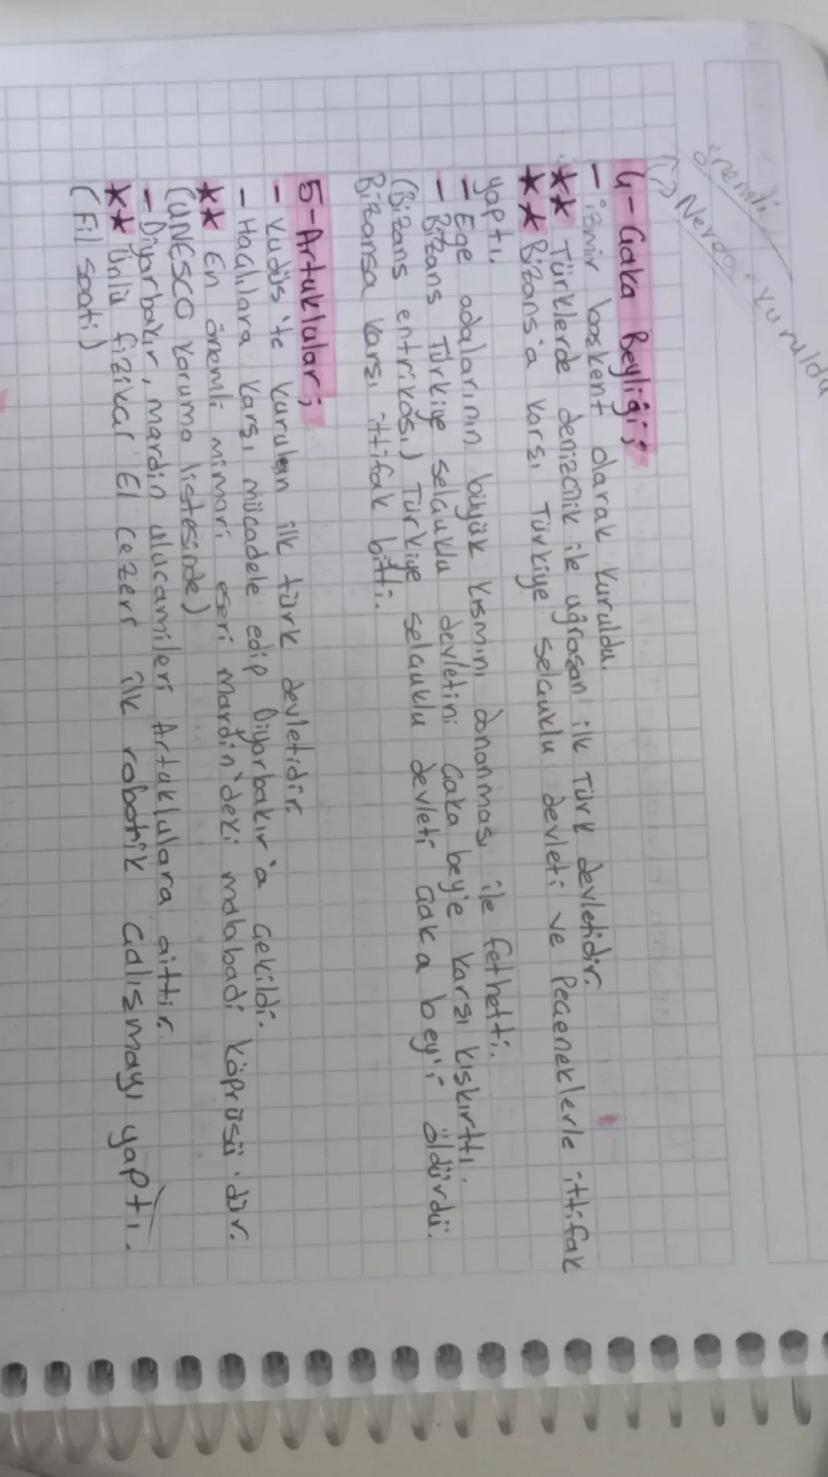 önemli
Nerede kuruldu
4-Çaka Beyliği;
- izmir başkent olarak kuruldu.
** Türklerde denizcilik ile uğraşan ilk Türk devletidir.
** Bizans'a karşı Türkiye selçuklu devleti ve Peçeneklerle ittifak
yaptı.
- Ege adalarının büyük kısmını donanması ile fethetti.
- Bizans Türkiye selçuklu devletini Çaka bey'e karşı kışkırttı.
(Bizans entrikası) Türkiye selçuklu devleti Çaka bey'i öldürdü.
Bizansa karşı ittifak bitti.
5-Artuklular;
- Kudüs'te kurulan ilk türk devletidir.
- Haçlılara karşı mücadele edip Diyarbakır'a çekildi.
** En önemli mimari eseri Mardin'deki malabadi köprüsü'dür.
(UNESCO koruma listesinde)
- Diyarbakır, mardin ulucamileri Artuklulara aittir.
** Ünlü fizikçi El Cezeri ilk robotik çalışmayı yaptı.
(Fil saati)